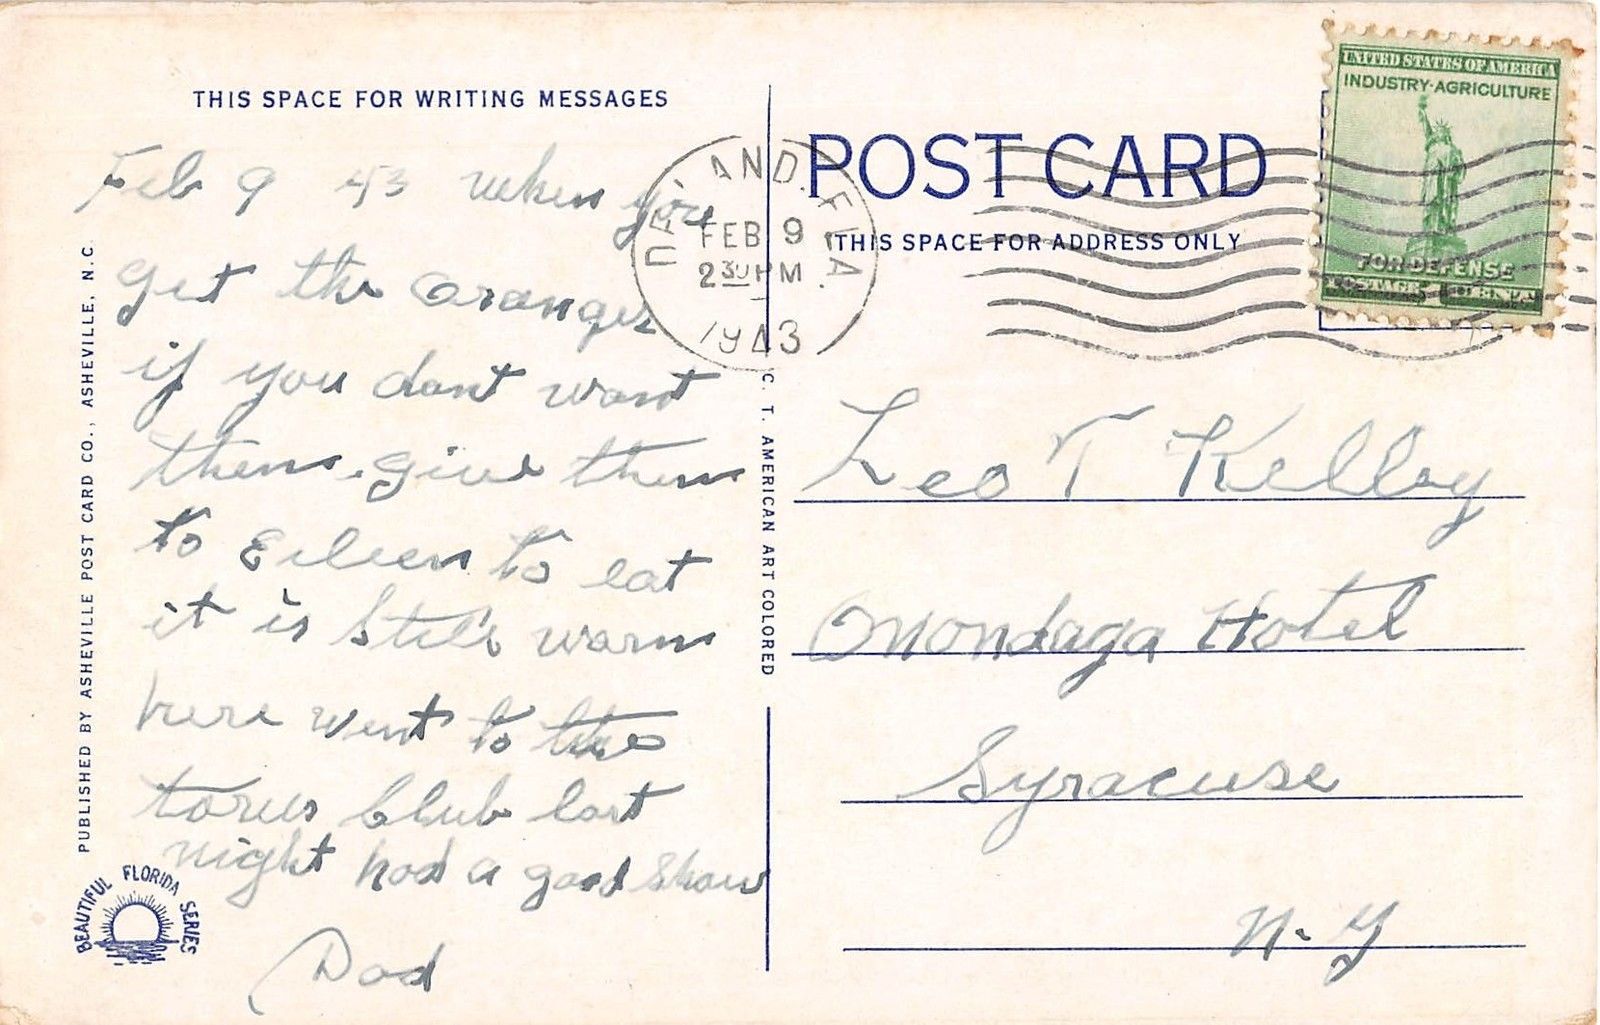 THIS SPACE FOR WRITING MESSAGES
Feb 9 43 when you
get the oranges
if you dont want
them. give them
to Eileen to eat
it is still warm
here went to the
torus Club last
night had a good show
Dad
PUBLISHED BY ASHEVILLE POST CARD CO., ASHEVILLE, N.C.
BEAUTIFUL FLORIDA SERIES
C. T. AMERICAN ART COLORED
DELAND, FLA.
FEB 9
2 30 PM
1943
POST CARD
THIS SPACE FOR ADDRESS ONLY
UNITED STATES OF AMERICA
INDUSTRY·AGRICULTURE
FOR DEFENSE
Leo T Kelley
Onondaga Hotel
Syracuse
N. Y